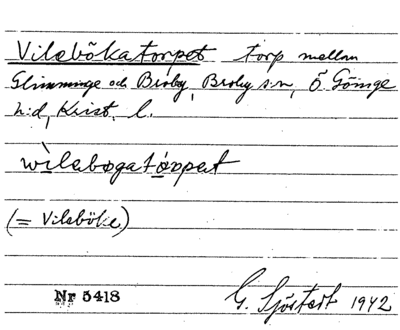 Vilebökatorpet torp mellan
Glimminge och Broby, Broby s:n, Ö. Göinge
h:d, Krist. l.
wìlabogatárpat
(= Vileböke)
Nr 5418 G. Sjöstedt 1942